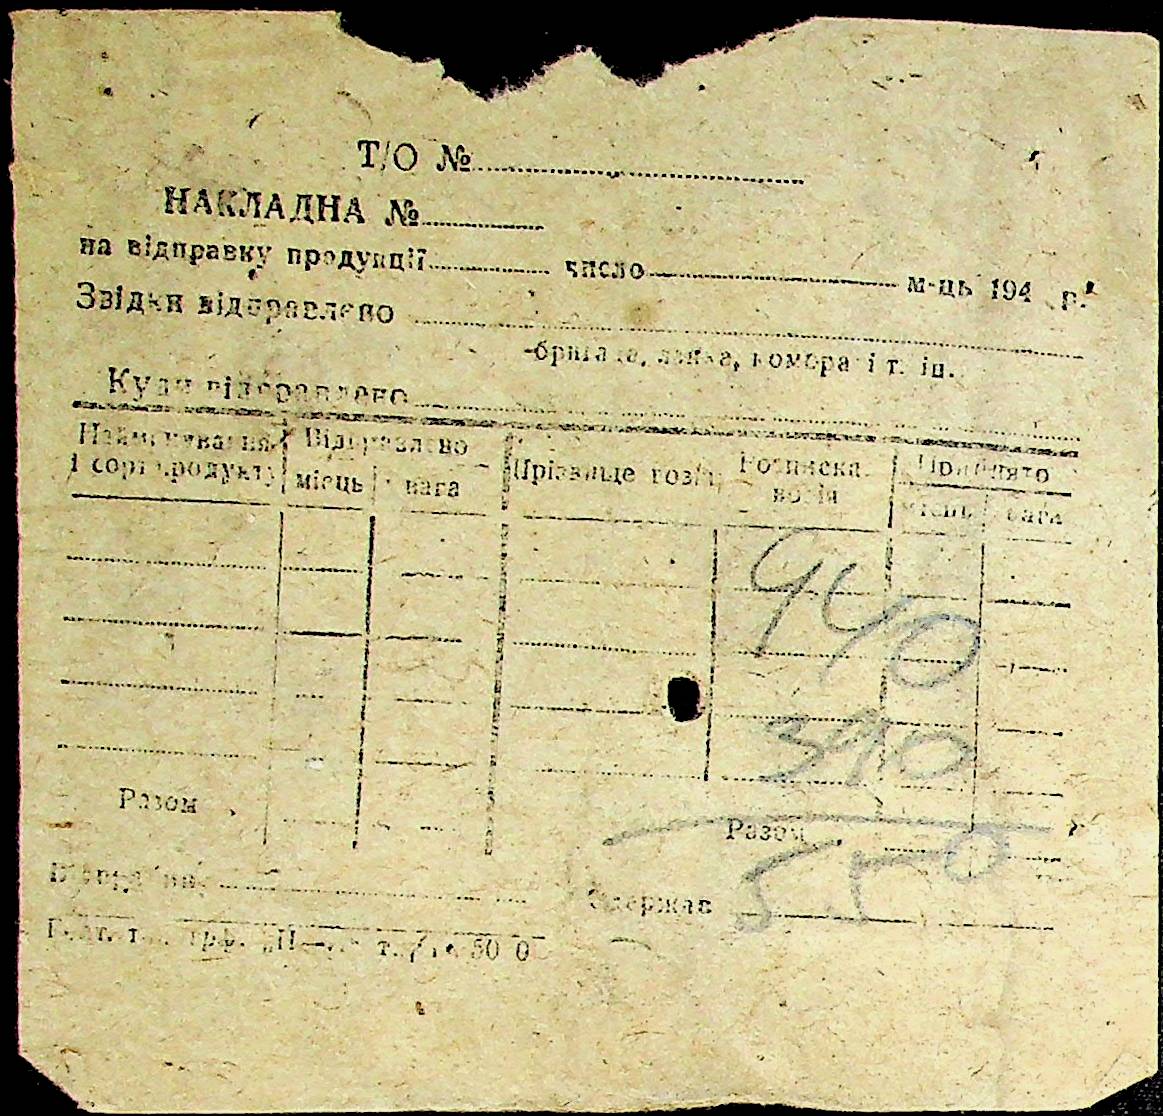 Т/О №
НАКЛАДНА №
на відправку продукції число м-ць 194 р.
Звідки відправлено
бригада, ланка, комора і т. ін.
Куди відправлено
Найменування і сорт продукту
Відправлено
місць вага
Прізвище возія
Розписка возія
Прийнято
місць вага
940
390
Разом
Разом
550
Відправив
Одержав